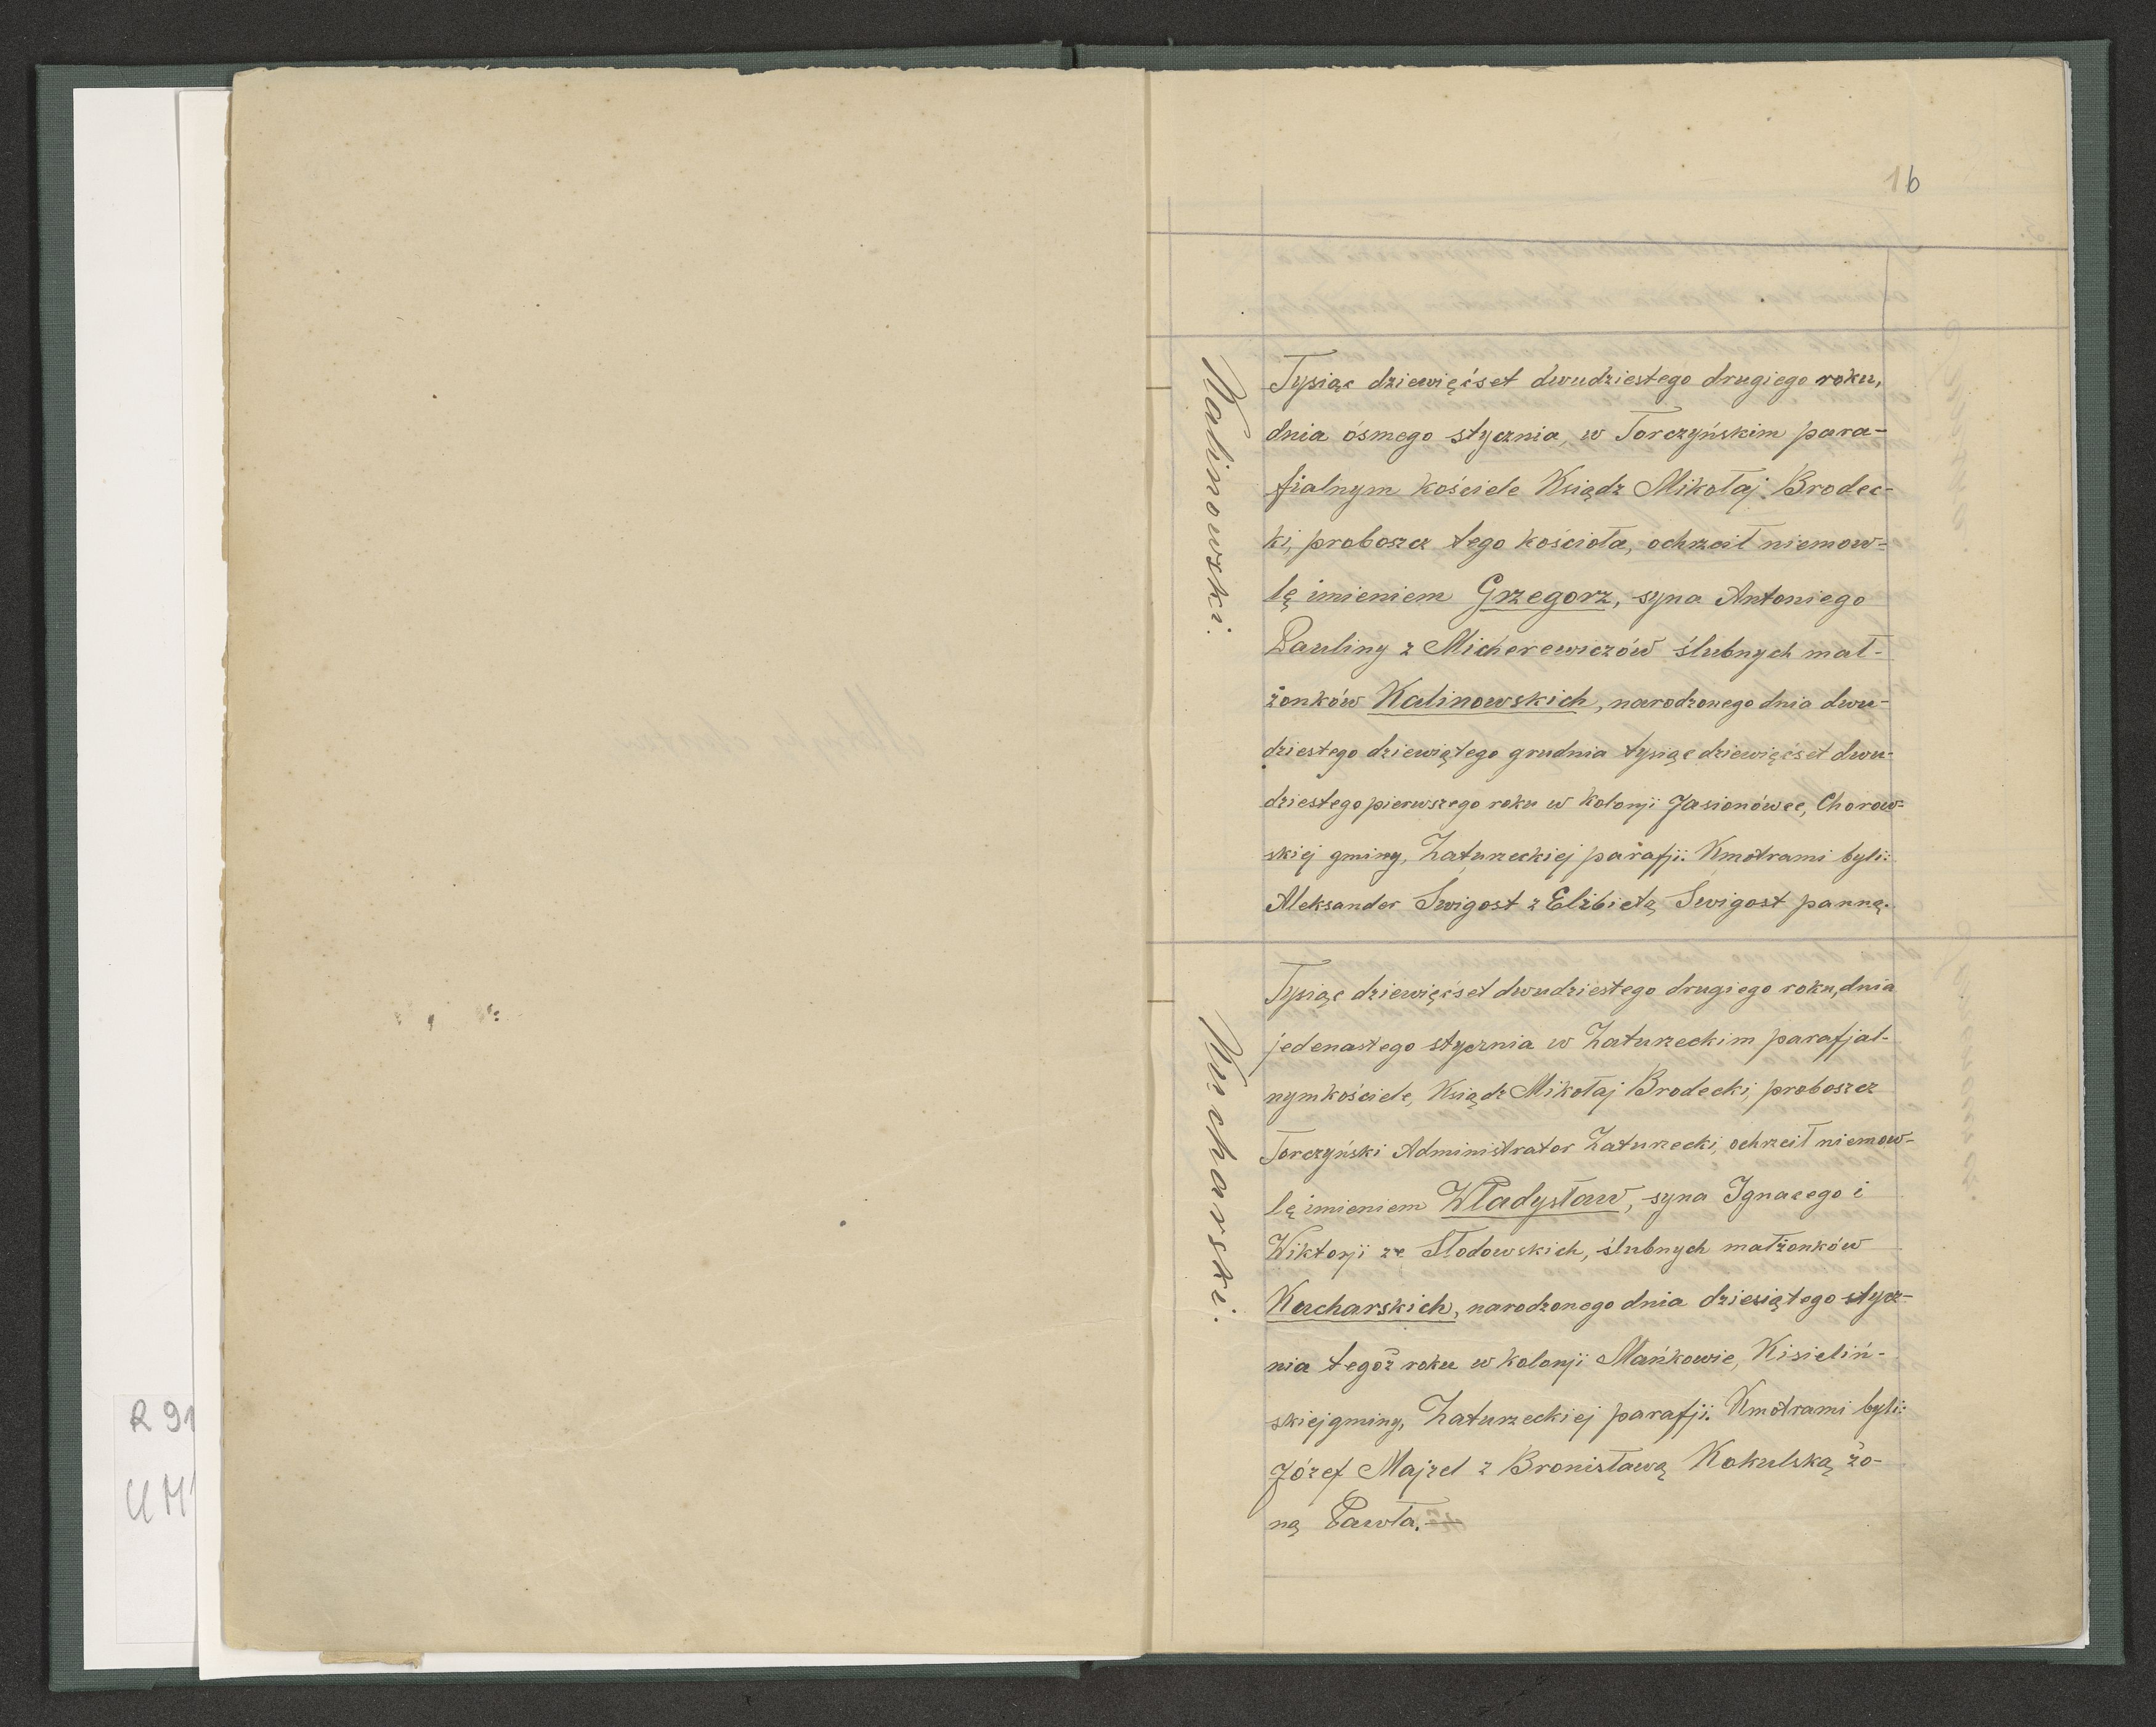 16
Kalinowski.
Tysiąc dziewięćset dwudziestego drugiego roku,
dnia ósmego stycznia, w Torczyńskim para-
fialnym kościele Ksiądz Mikołaj Brodec-
ki, proboszcz tego kościoła, ochrzcił niemow-
lę imieniem Grzegorz, syna Antoniego
Pauliny z Micherewiczów ślubnych mał-
żonków Kalinowskich, narodzonego dnia dwu-
dziestego dziewiątego grudnia tysiąc dziewięćset dwu-
dziestego pierwszego roku w kolonji Jasionówce, Chorow-
skiej gminy, Zaturzeckiej parafji. Kmotrami byli:
Aleksander Swigost z Elżbietą Swigost panną.
Kucharski.
Tysiąc dziewięćset dwudziestego drugiego roku, dnia
jedenastego stycznia w Zaturzeckim parafjal-
nym kościele, Ksiądz Mikołaj Brodecki, proboszcz
Torczyński Administrator Zaturzecki, ochrzcił niemow-
lę imieniem Władysław, syna Ignacego i
Wiktorji ze Słodowskich, ślubnych małżonków
Kucharskich, narodzonego dnia dziesiątego stycz-
nia tegoż roku w kolonji Mańkowie, Kisieliń-
skiej gminy, Zaturzeckiej parafji. Kmotrami byli:
Józef Majzel z Bronisławą Kokulską żo-
ną Pawła.
R 91
UM